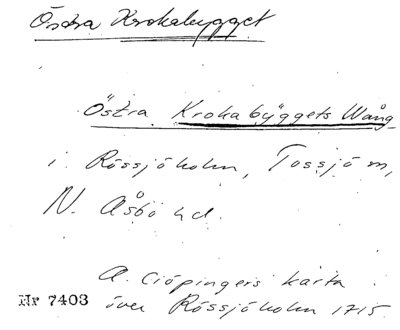 Östra Krokabygget
Östra Krokabÿggets Wång
i Rössjöholm, Tossjö sn,
N. Åsbo hd.
A. Ciöpingers karta
Nr 7403 över Rössjöholm 1715.